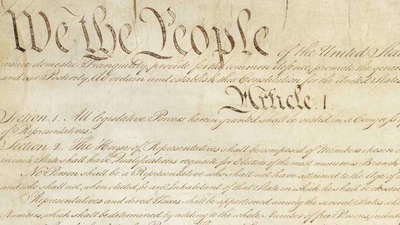 We the People of the United Sta
insure domestic Tranquility, provide for the common defence, promote the gene
and our Posterity, do ordain and establish this Constitution for the United States
Article. I.
Section. 1. All legislative Powers herein granted shall be vested in a Congr
of Representatives.
Section. 2. The House of Representatives shall be composed of Members chosen
in each State shall have Qualifications requisite for Electors of the most numerous Branch
No Person shall be a Representative who shall not have attained to the Age of
and who shall not, when elected, be an Inhabitant of that State in which he shall be
Representatives and direct Taxes shall be apportioned among the several States
Numbers, which shall be determined by adding to the whole Number of free Persons, includ